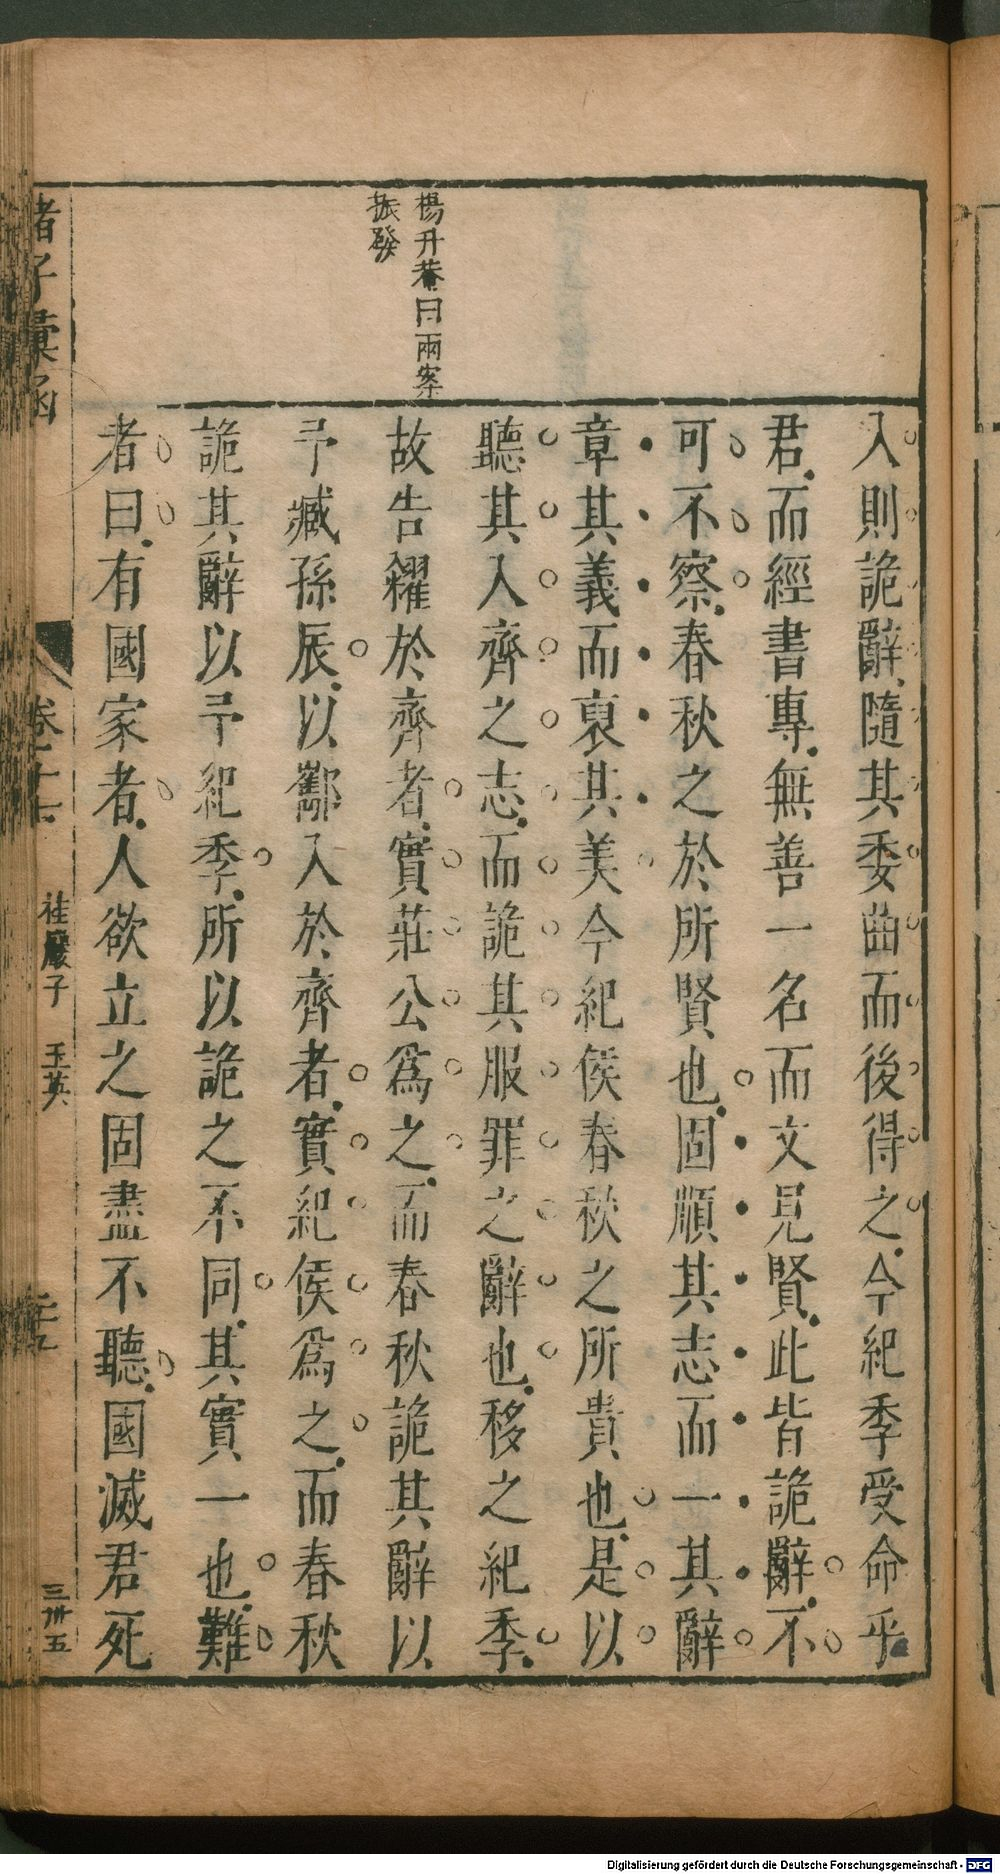 楊升菴曰兩案
振發
入則詭辭隨其委曲而後得之今紀季受命乎
君而經書專無善一名而文見賢此皆詭辭不
可不察春秋之於所賢也固順其志而一其辭
章其義而裒其美今紀侯春秋之所貴也是以
聽其入齊之志而詭其服罪之辭也移之紀季
故告糴於齊者實莊公爲之而春秋詭其辭以
予臧孫辰以酅入於齊者實紀侯爲之而春秋
詭其辭以予紀季所以詭之不同其實一也難
者曰有國家者人欲立之固盡不聽國滅君死
諸子彙函
卷二十七
桂巖子 玉英
三卅五
Digitalisierung gefördert durch die Deutsche Forschungsgemeinschaft - DFG